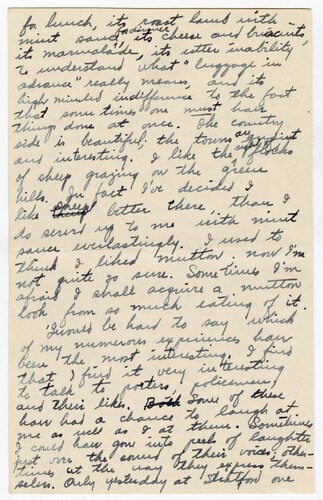 for lunch, its roast lamb with
mint sauce for dinner, its cheese and biscuits,
its marmalade, its utter inability
to understand what "luggage in
advance" really means, and its
high minded indifference to the fact
that sometimes one must have
things done at once. The country
side is beautiful, the towns are quaint
and interesting. I like the flocks
of sheep grazing on the green
hills. In fact I've decided I
like sheep better there than I
do served up to me with mint
sauce everlastingly. I used to
think I liked mutton now I'm
not quite so sure. Sometimes I'm
afraid I shall acquire a mutton
look from so much eating of it.
'Twould be hard to say which
of my numerous experiences have
been the most interesting. I find
that I find it very interesting
to talk to porters, policemen,
and their likes. Both Some of these
have had a chance to laugh at
me as well as I at them. Sometimes
I could have gone into peels of laughter
just over the sound of their voices, other
times at the way they express them-
selves. Only yesterday at Stratford one